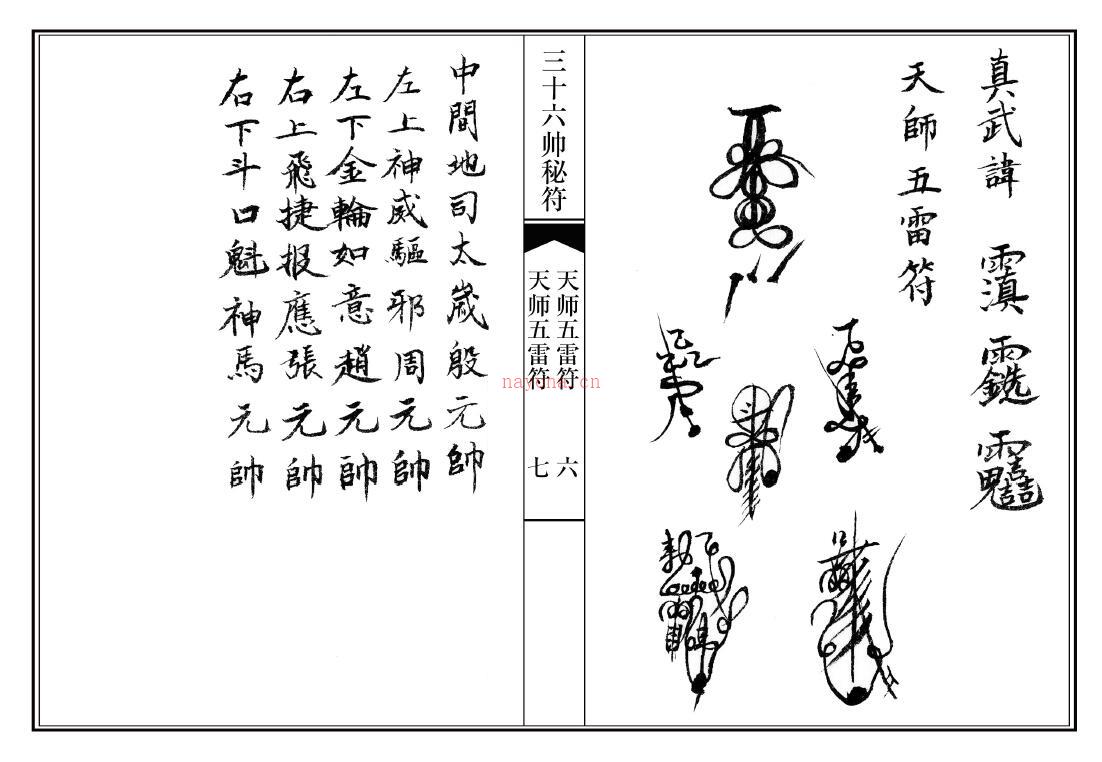 真武諱
天師五雷符
三十六帅秘符
天师五雷符 六
天师五雷符 七
中間地司太歲殷元帥
左上神威驅邪周元帥
左下金輪如意趙元帥
右上飛捷报應張元帥
右下斗口魁神馬元帥
nayona.cn